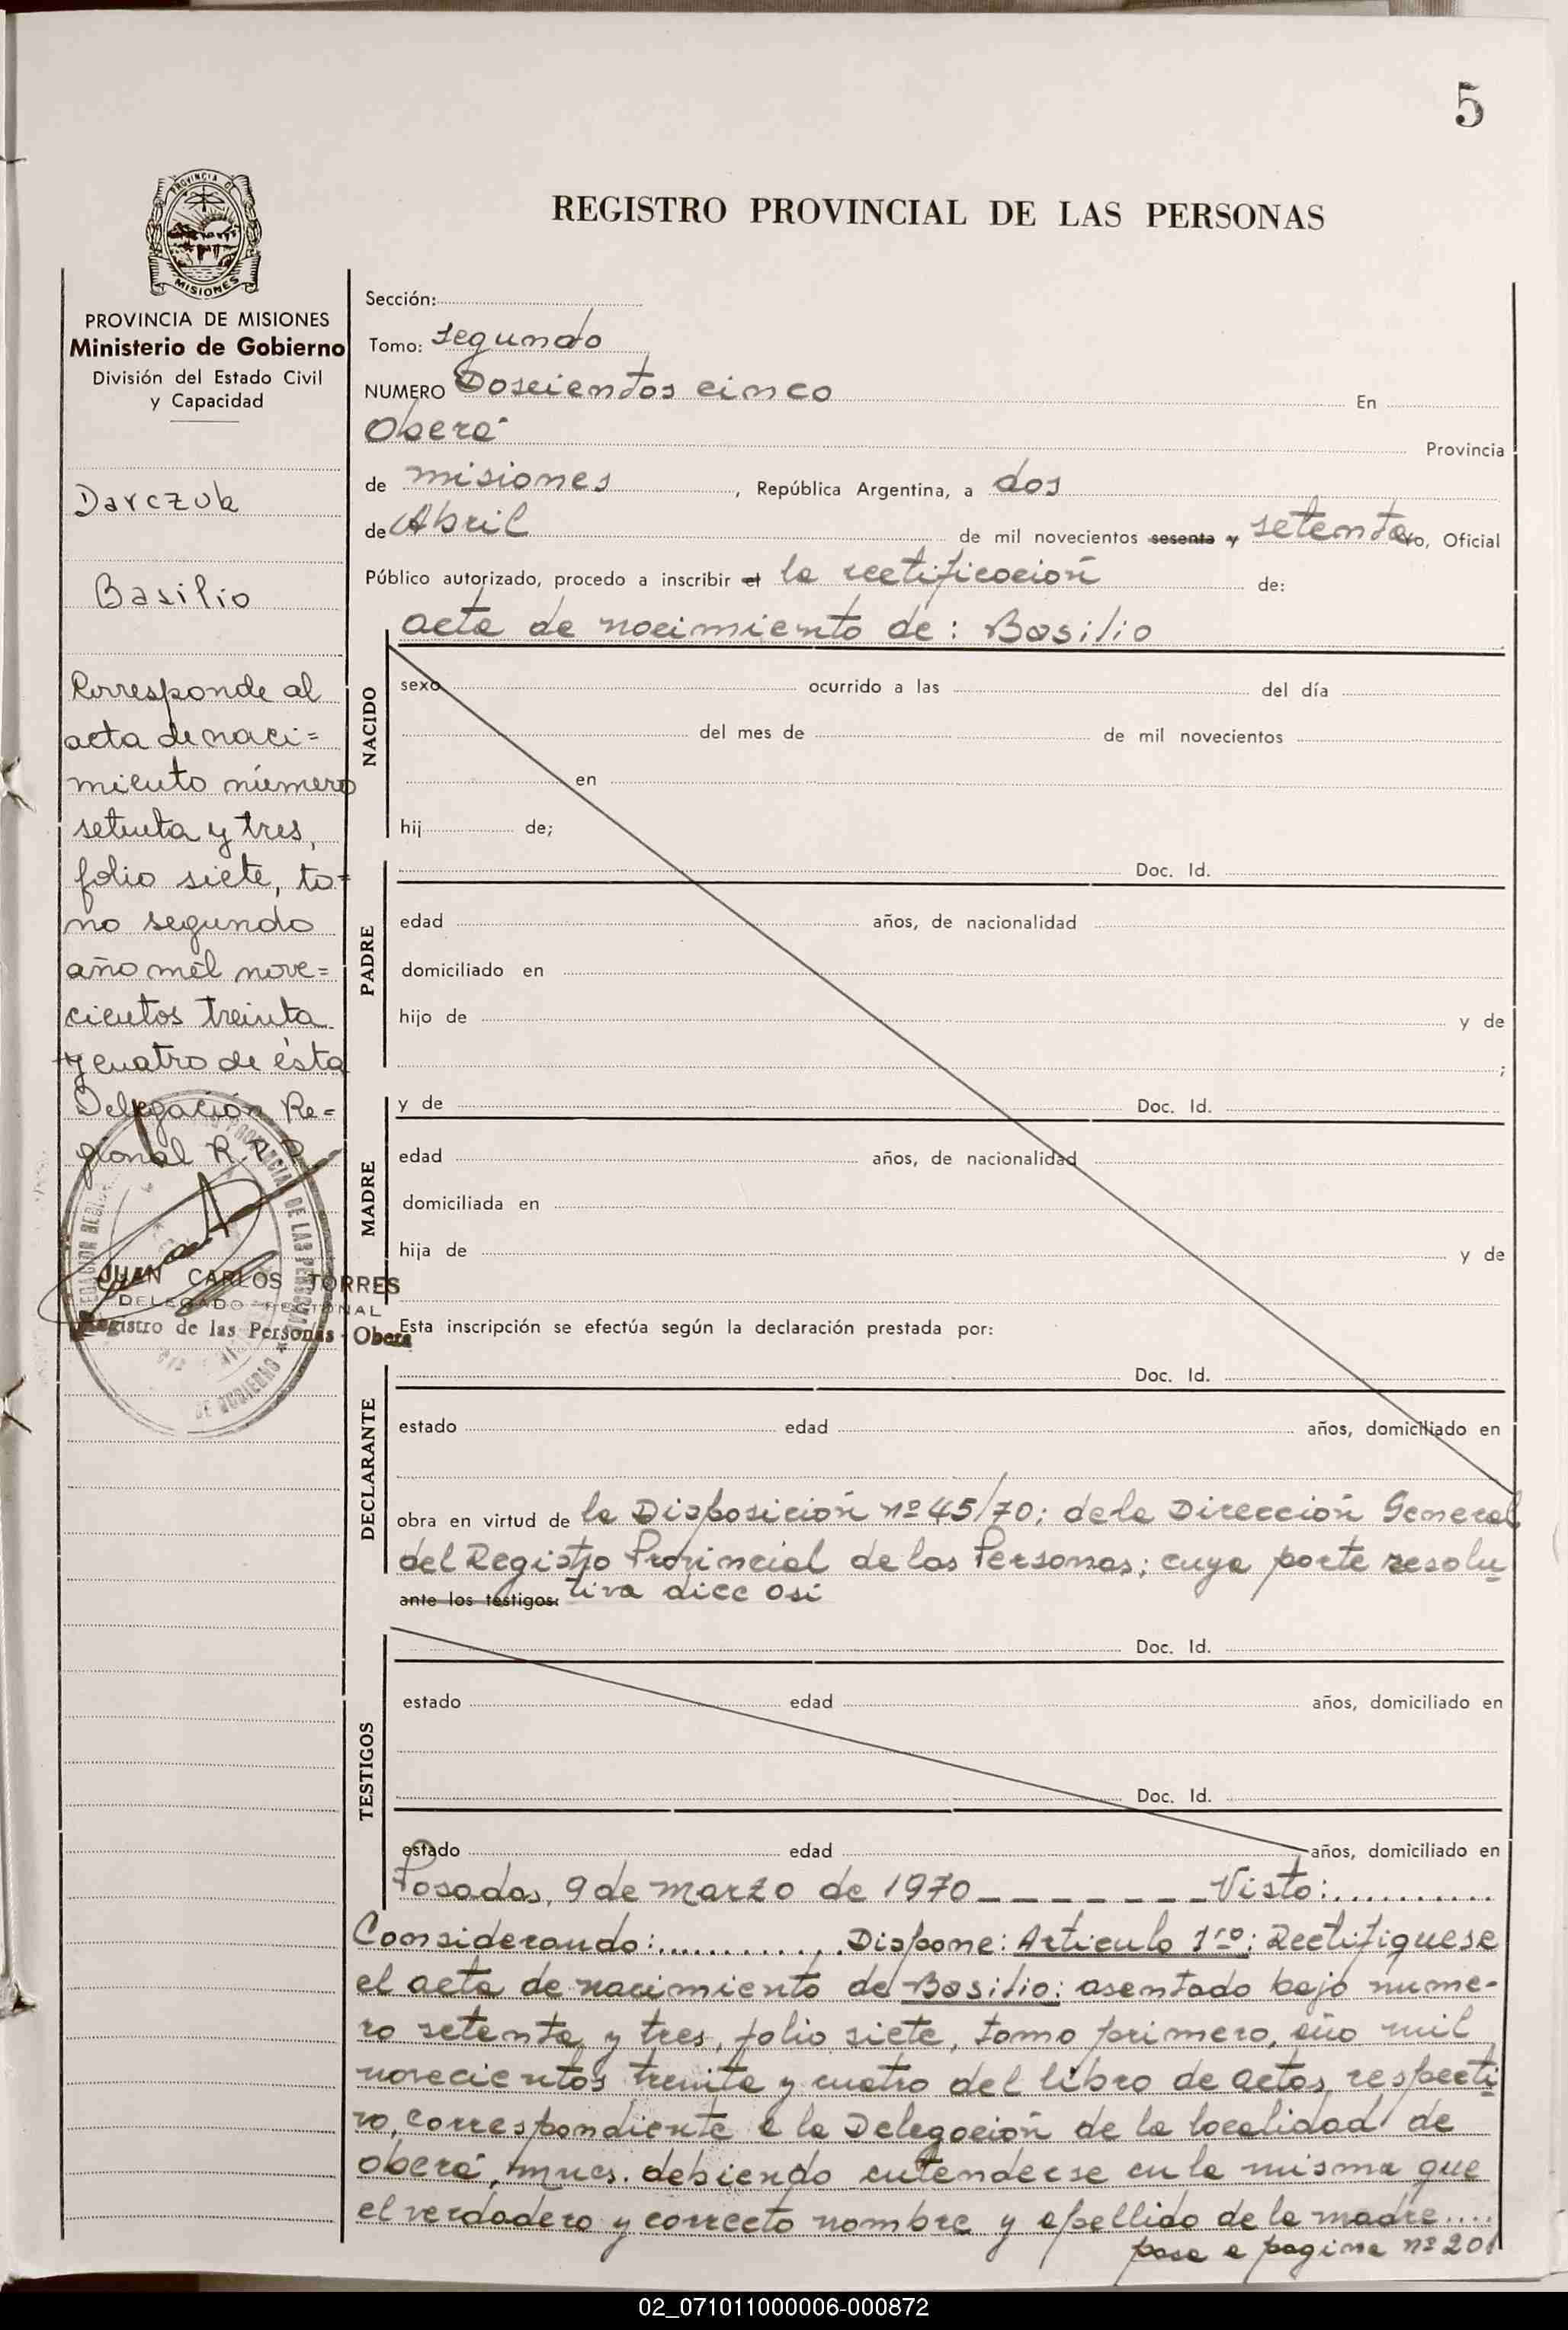 5
PROVINCIA DE
MISIONES
REGISTRO PROVINCIAL DE LAS PERSONAS
PROVINCIA DE MISIONES
Ministerio de Gobierno
División del Estado Civil
y Capacidad
Darczuk
Basilio
Corresponde al
acta de naci=
miento número
setenta y tres,
folio siete, to=
mo segundo
año mil nove=
cientos treinta
y cuatro de ésta
Delegación Re-
gional R.P.P.
JUAN CARLOS TORRES
DELEGADO REGIONAL
Registro de las Personas - Obera
Sección:
Tomo: segundo
NUMERO Doscientos cinco En
Oberá Provincia
de misiones, República Argentina, a dos
de Abril de mil novecientos sesenta y setenta yo, Oficial
Público autorizado, procedo a inscribir el la rectificación de:
acta de nacimiento de: Basilio
NACIDO
sexo ocurrido a las del día
del mes de de mil novecientos
en
hij de;
PADRE
Doc. Id.
edad años, de nacionalidad
domiciliado en
hijo de y de
;
MADRE
y de Doc. Id.
edad años, de nacionalidad
domiciliada en
hija de y de
Esta inscripción se efectúa según la declaración prestada por:
DECLARANTE
Doc. Id.
estado edad años, domiciliado en
obra en virtud de la Disposición nº 45/70; de la Dirección General
del Registro Provincial de las Personas; cuya parte resolu-
ante los testigos: tiva dice asi
TESTIGOS
Doc. Id.
estado edad años, domiciliado en
Doc. Id.
estado edad años, domiciliado en
Posadas, 9 de marzo de 1970 _ _ _ _ _ _ _ Visto:...........
Considerando:............Dispone: Articulo 1ro: Rectifiquese
el acta de nacimiento de Basilio: asentado bajo nume-
ro setenta y tres, folio siete, tomo primero, año mil
novecientos treinta y cuatro del libro de actas respecti-
vo, correspondiente a la Delegación de la localidad de
oberá, mnes. debiendo entenderse en la misma que
el verdadero y correcto nombre y apellido de la madre....
pase a pagina nº 201
02_071011000006-000872